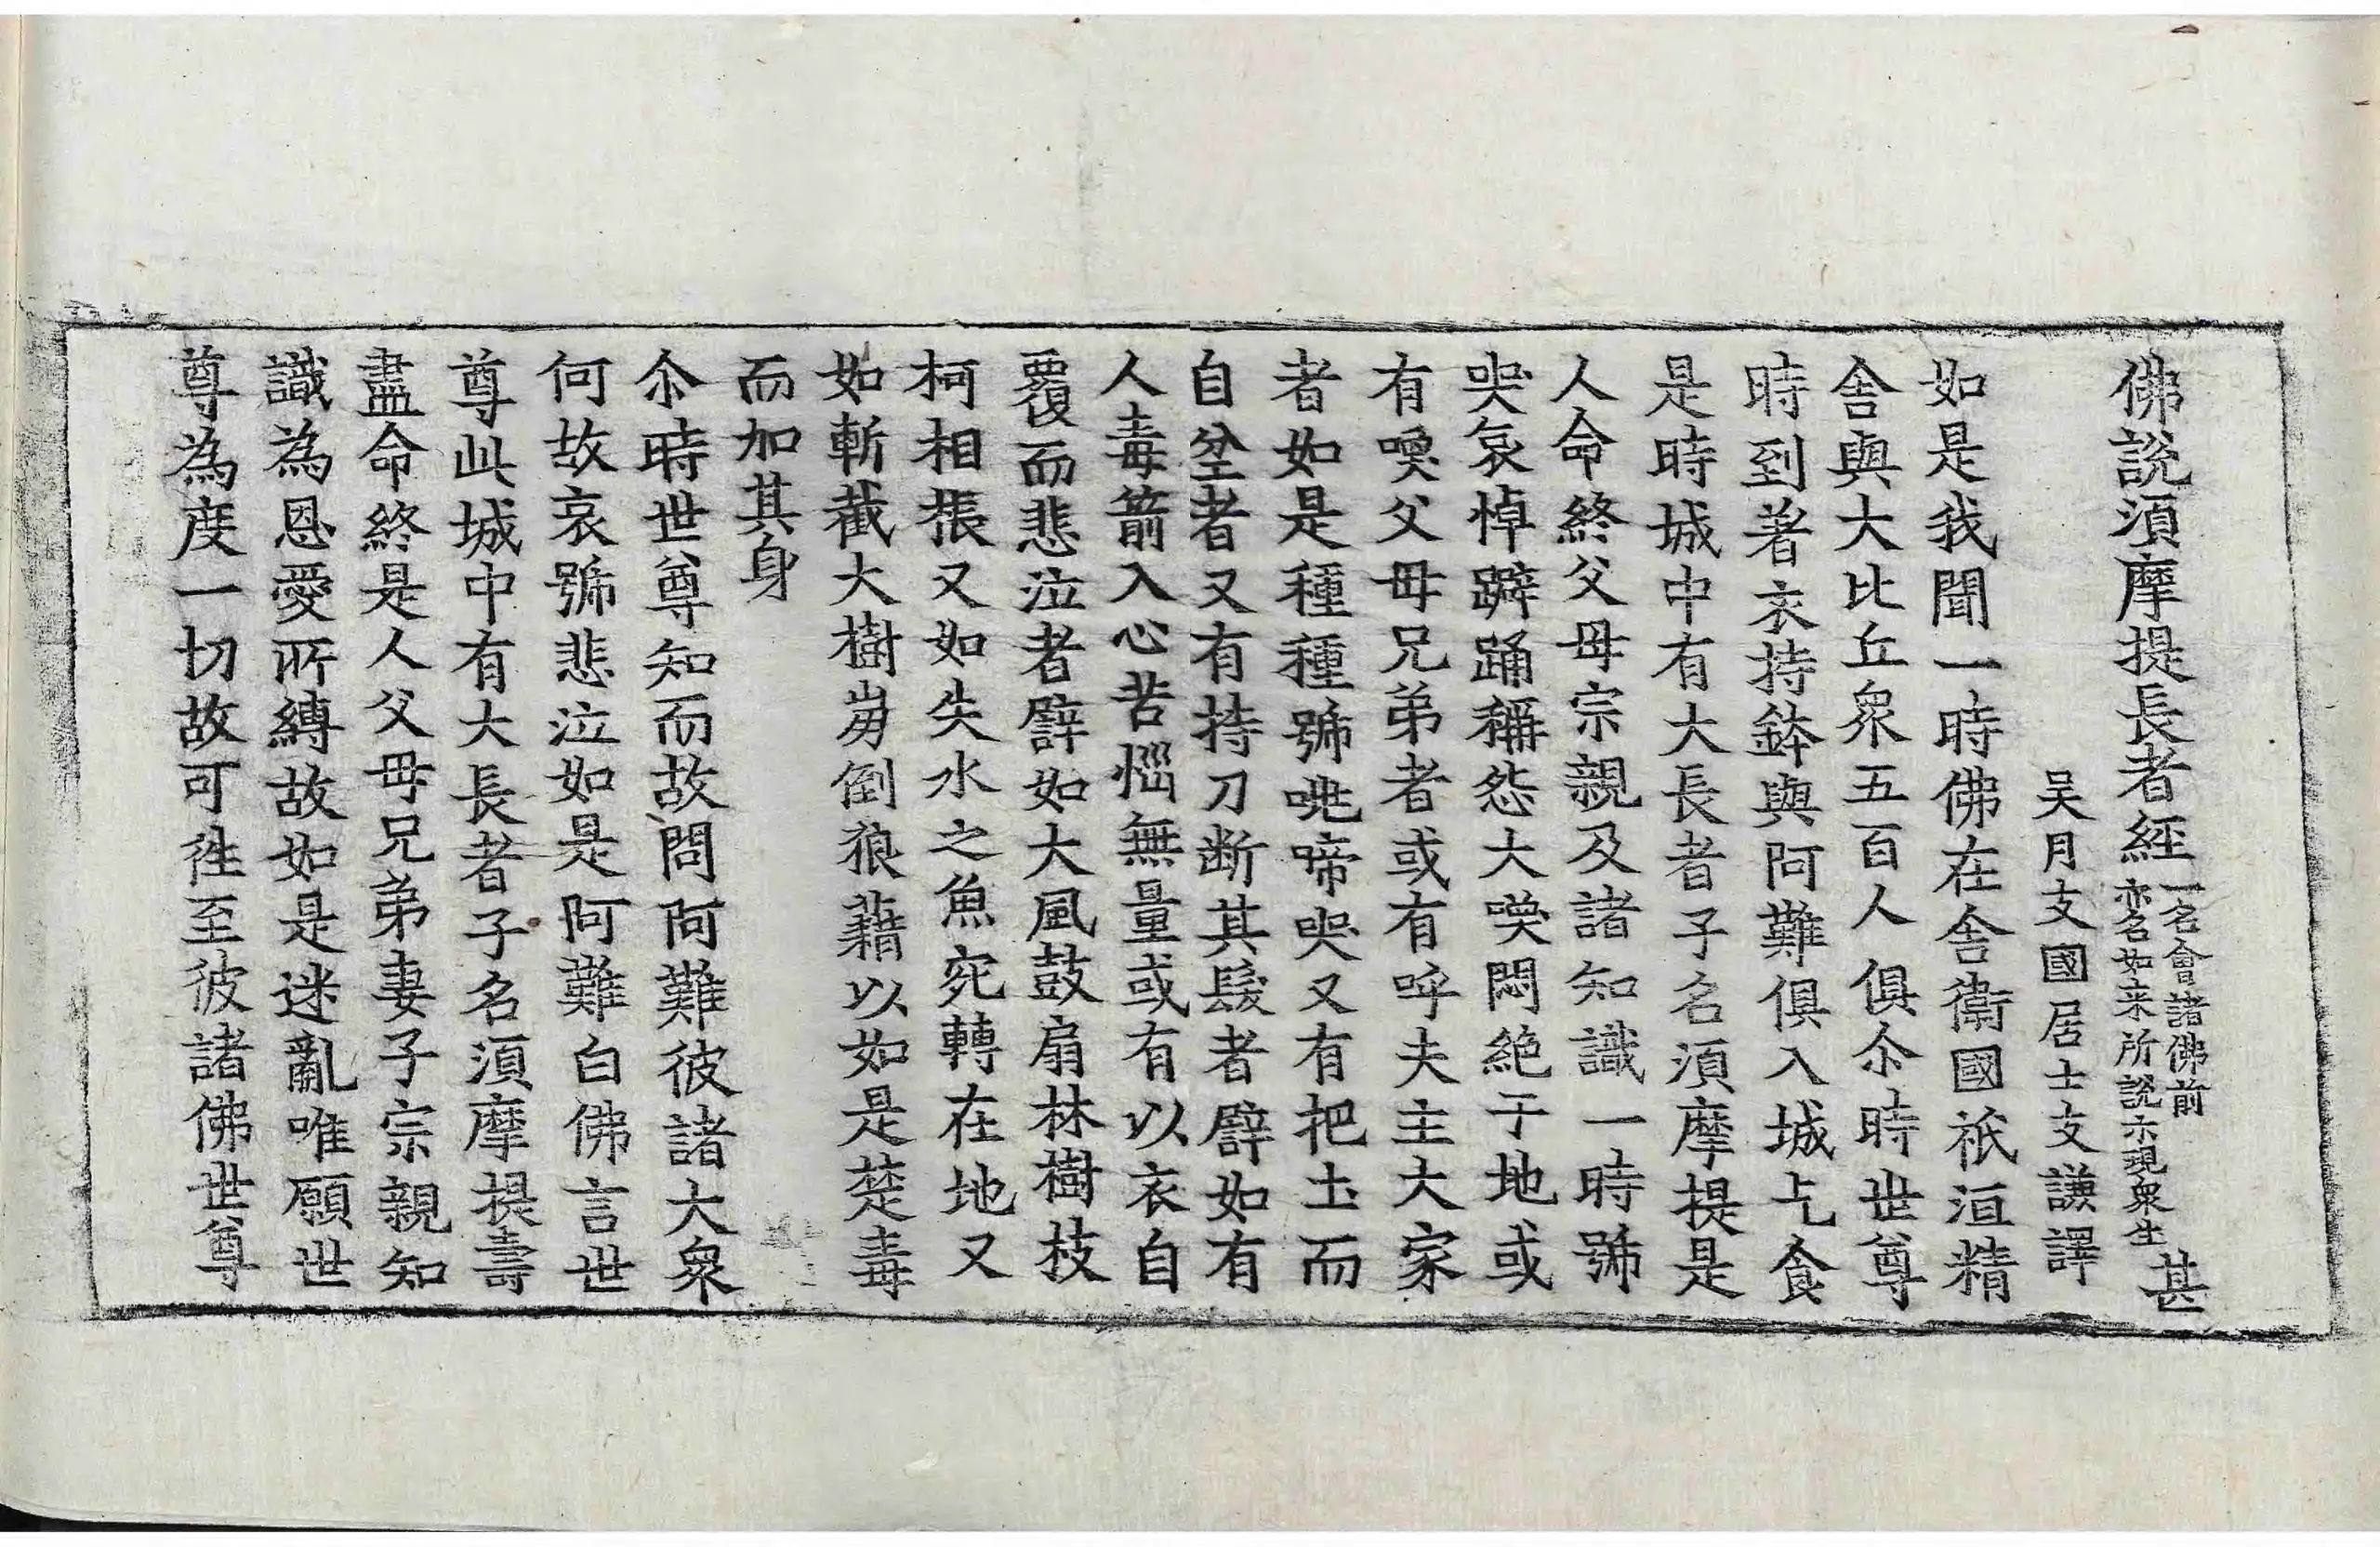 佛說湏摩提長者經一名會諸佛前亦名如来所說示現衆生甚
吴月支國居士支謙譯
如是我聞一時佛在舍衛國祇洹精
舍與大比丘衆五百人俱尒時世尊
時到著衣持鉢與阿難俱入城乞食
是時城中有大長者子名湏摩提是
人命終父母宗親及諸知識一時號
哭哀悼躃踊稱怨大喚悶絶于地或
有喚父母兄弟者或有呼夫主大家
者如是種種號咷啼哭又有把土而
自坌者又有持刀断其髮者譬如有
人毒箭入心苦惱無量或有以衣自
覆而悲泣者譬如大風鼓扇林樹枝
柯相棖又如失水之魚宛轉在地又
如斬截大樹崩倒狼藉以如是楚毒
而加其身
尒時世尊知而故問阿難彼諸大衆
何故哀號悲泣如是阿難白佛言世
尊此城中有大長者子名湏摩提壽
盡命終是人父母兄弟妻子宗親知
識為恩愛所縛故如是迷亂唯願世
尊為度一切故可往至彼諸佛世尊